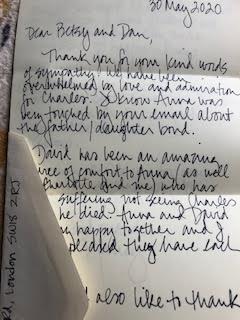 30 May 2020
Dear Betsy and Dan,
Thank you for your kind words
of sympathy. We have been
overwhelmed by love and admiration
for Charles. I know Anna was
very touched by your email about
the father/daughter bond.
David has been an amazing
of comfort to Anna (as well
Charlotte and me) who has
suffering not seeing Charles
he died. Anna and David
happy together and I
pleased they have each
also like to thank
London SW15 2RJ